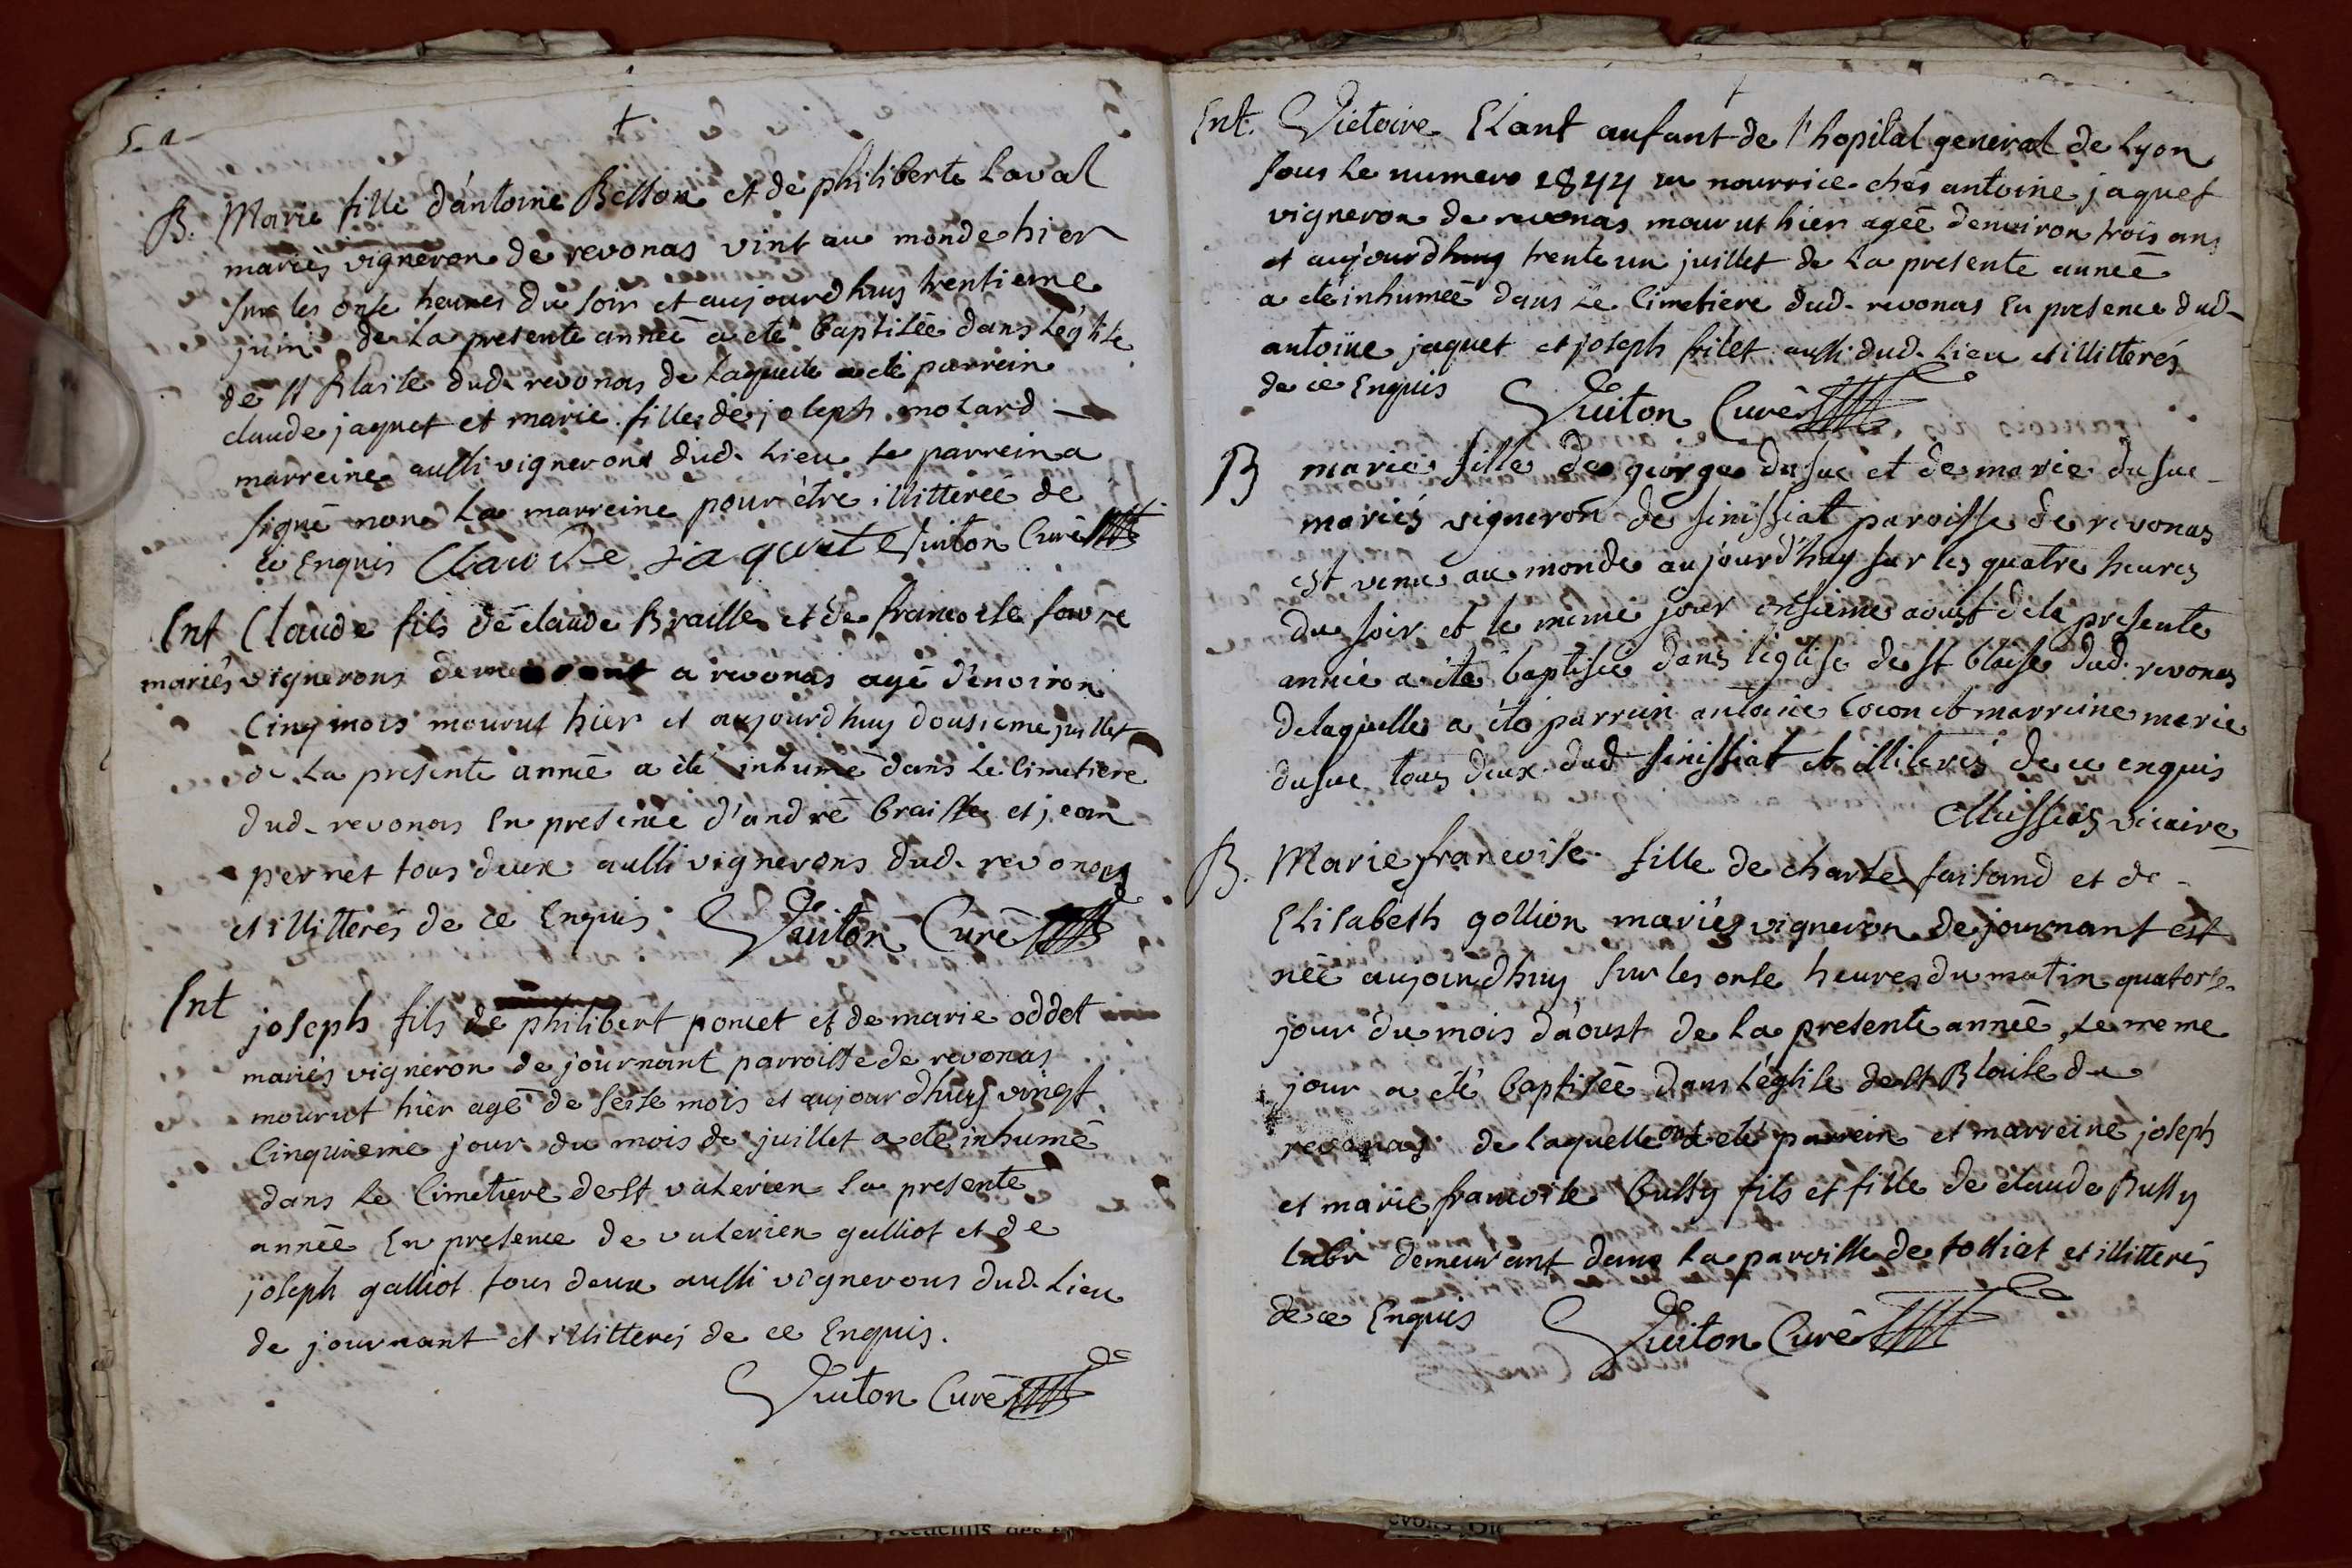 B. Marie fille d'antoine Bellon et de philiberte Laval
mariés vigneron de revonas vint au monde hier
sur les onse heures du soir et aujourdhuy trentieme
juin de la presente année a eté baptisée dans l'église
de st Blaise dud. revonas de laquelle a eté parrein
claude jaquet et marie fille de joseph molard
marreine aussi vignerons dud. lieu le parrein a
signé non la marreine pour être illitterée de
ce Enquis Claude jaquet Vuiton Curé
Ent Claude fils de claude Braille et de francoise favre
mariés vignerons demeurant a revonas agé d'environ
Cinq mois mourut hier et aujourdhuy dousieme juillet
de la presente année a eté inhumé dans le Cimetiere
dud. revonas En presence d'andré braille et jean
pernet tous deux aussi vignerons dud. revonas
et illitterés de ce Enquis Vuiton Curé
Ent joseph fils de philibert poncet et de marie oddet
mariés vigneron de journant parroisse de revonas
mourut hier agé de seise mois et aujourdhuy vingt
Cinquieme jour du mois de juillet a eté inhumé
dans le Cimetiere de st valerien la presente
année En presence de valerien galliot et de
joseph galliot tous deux aussi vignerons dud. lieu
de journant et illitterés de ce Enquis.
Vuiton Curé
Ent. Victoire Elant anfant de l'hopital general de Lyon
sous le numero 2844 en nourrice chés antoine jaquet
vigneron de revonas mourut hier agée denviron trois ans
et aujourdhuy trente un juillet de la presente année
a eté inhumée dans le Cimetiere dud. revonas En presence dud.
antoine jaquet et joseph frilet aussi dud. lieu et illitterés
de ce Enquis Vuiton Curé
B marie fille de george dusuc et de marie dusuc
mariés vigneron de sinissiat paroisse de revonas
est venue au monde aujourd'huy sur les quatre heures
du soir et le même jour onsieme aoust de la presente
année a eté baptisée dans l'église de st blaise dud. revonas
de laquelle a eté parrein antoine Cocon et marreine marie
dusuc tous deux dud sinissiat et illiterés de ce enquis
vicaire
B. Marie francoise fille de charle faisand et de
Elisabeth gollion mariés vigneron de journant est
née aujourdhuy sur les onse heures du matin quatorse
jour du mois d'aoust de la presente année, le meme
jour a eté baptisée dans l'église de st Blaise du
revonas de laquelle ont eté parrein et marreine joseph
et marie francoise bussy fils et fille de claude Bussy
demeurant dans la paroisse de tossiat et illitterés
de ce Enquis Vuiton Curé